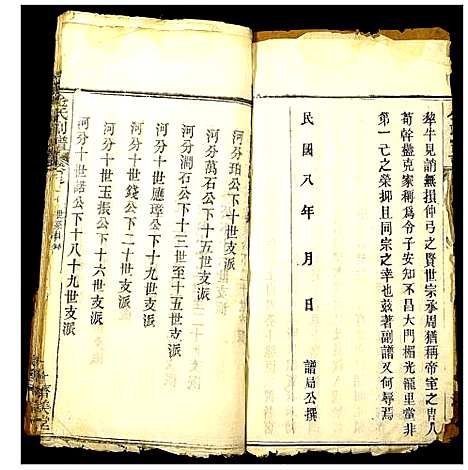 犂牛見誚無損仲弓之賢世宗承周猶稱帝室之胄人
苟幹蠱克家稱爲令子安知不昌大門楣光寵里黨非
第一己之榮抑且同宗之幸也玆著副譜又何辱焉
民國八年 月 日 譜局公撰
河分珀公下十世支派
河分萬石公下十五世支派
河分澗石公下十三世至十五世支派
河分十世應璋公下十九世支派
河分十世錢公下二十世支派
河分十世玉振公下十六世支派
河分十世諾公下十八十九世支派
氏副譜
世系目錄
濟美堂